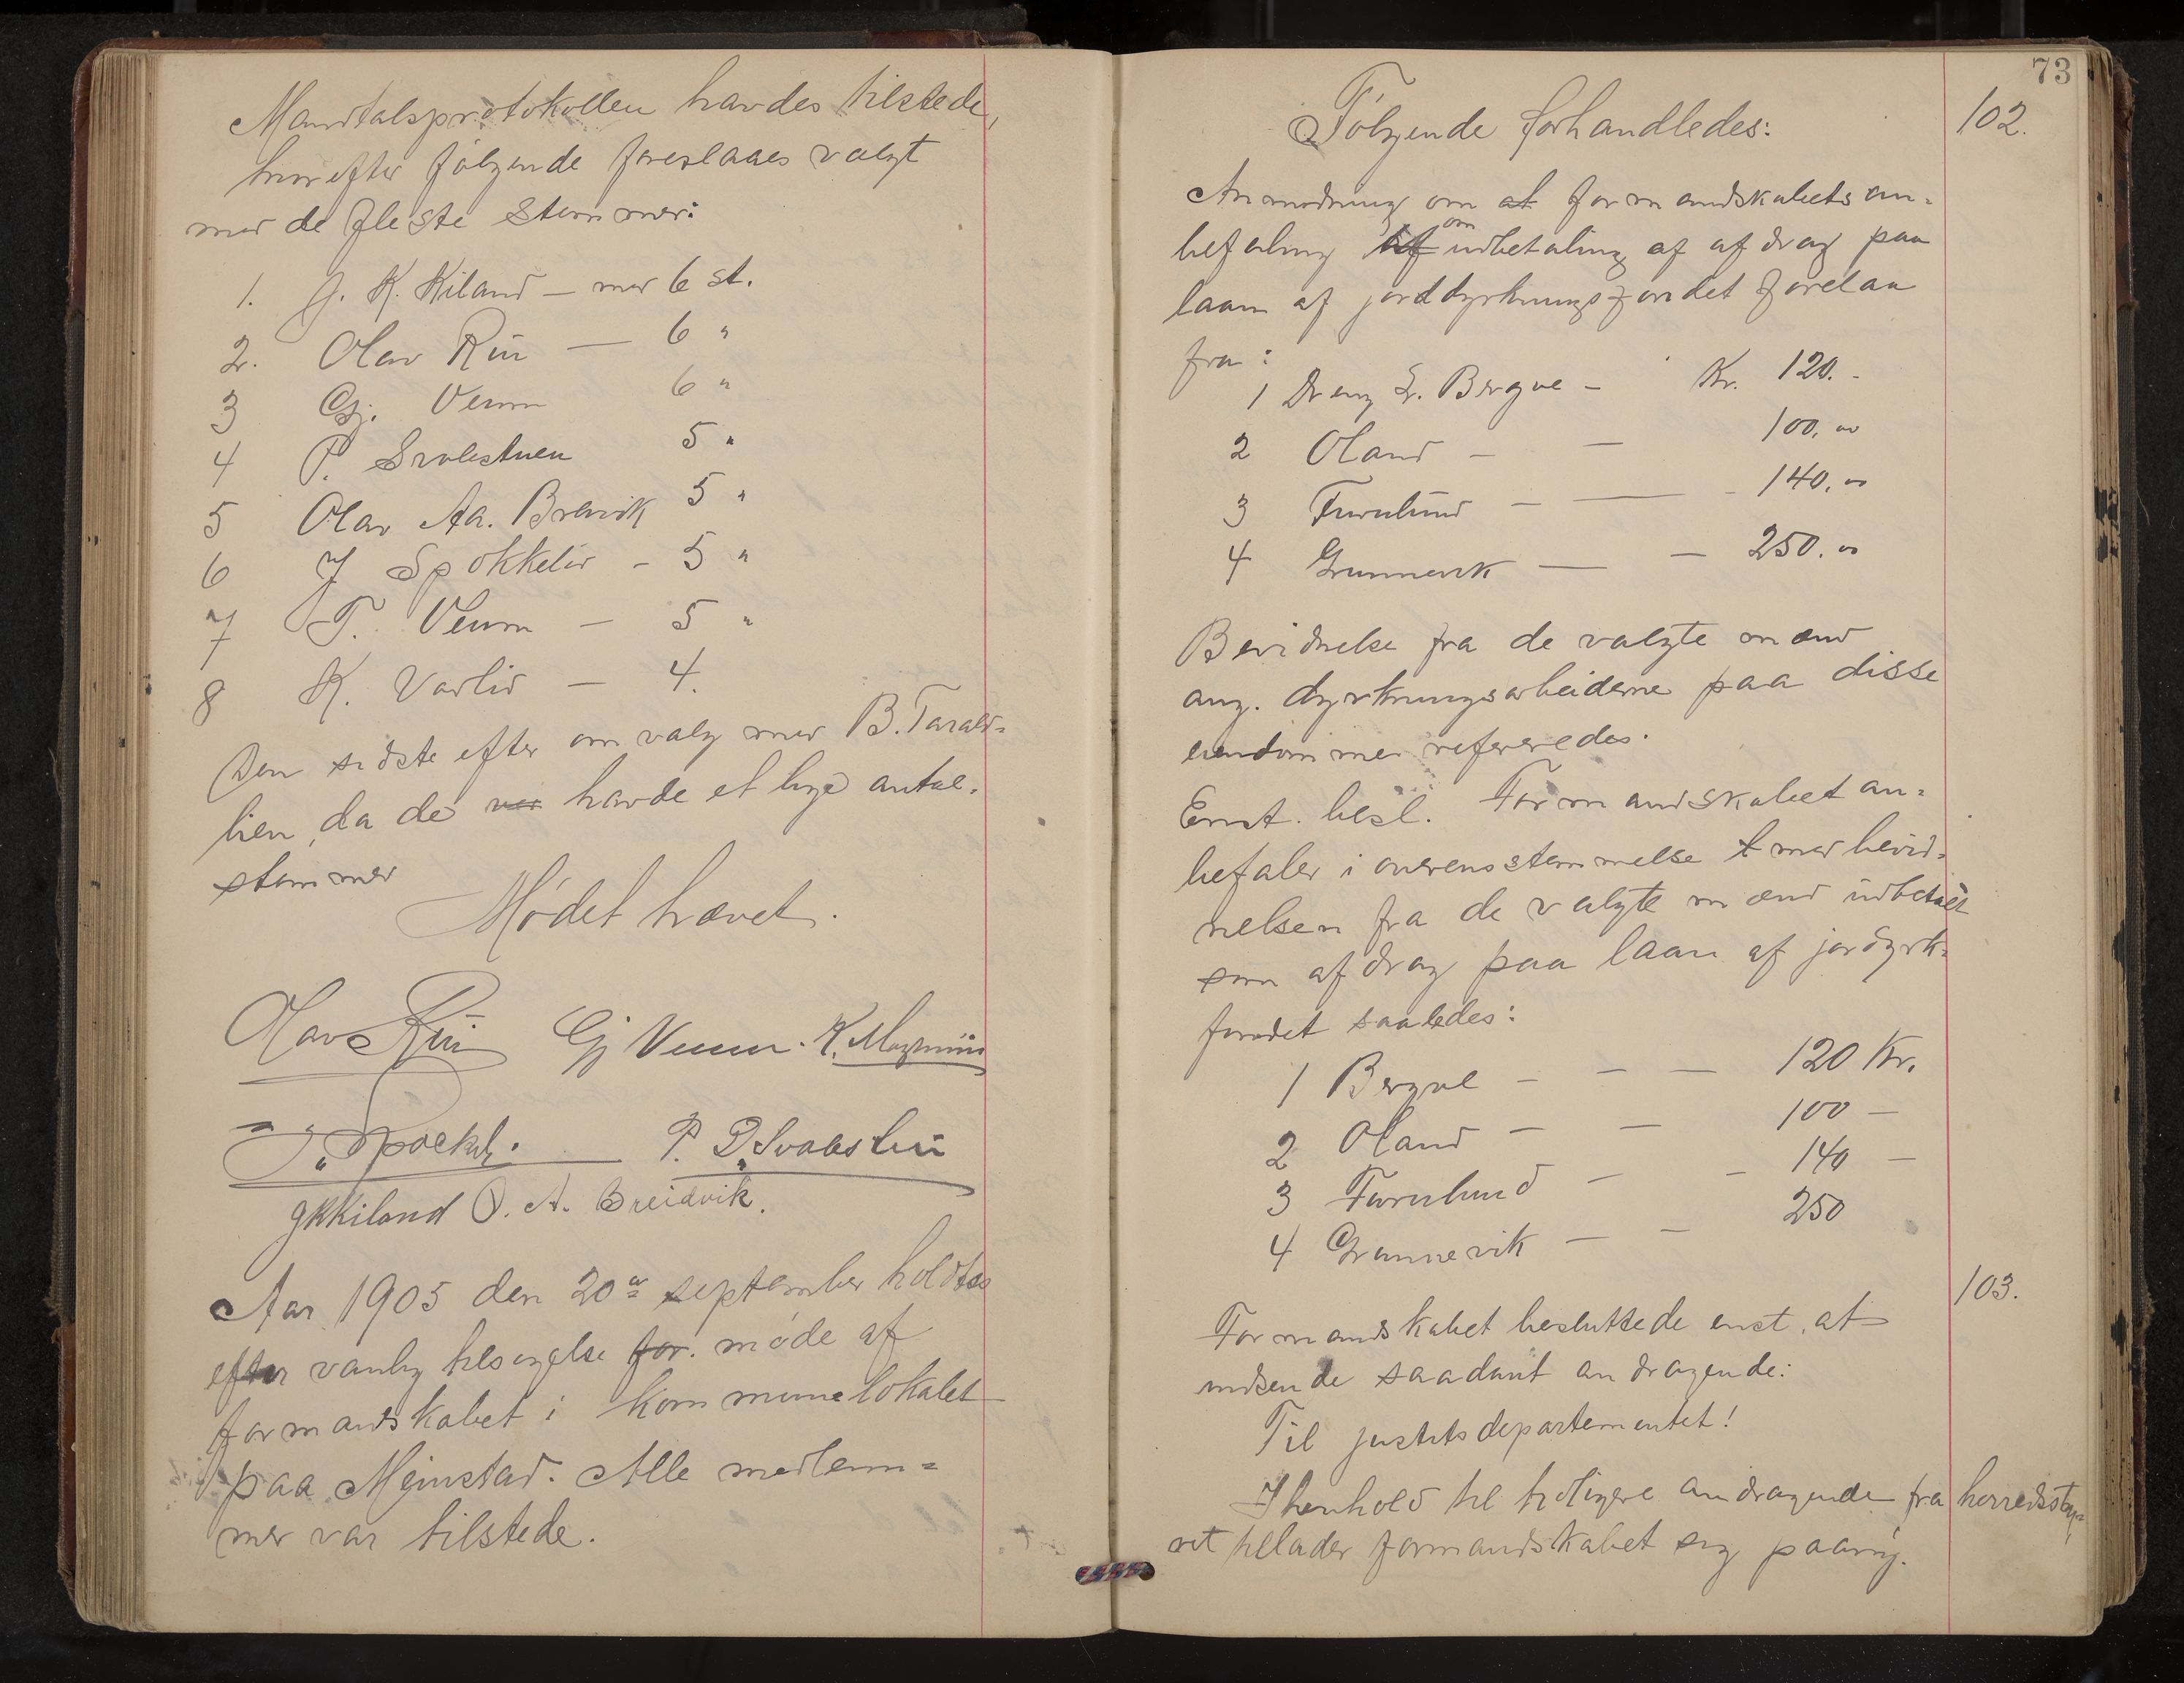 Mandtalsprotokollen havdes tilstede,
hvorefter følgende foreslaaes valgt
med de fleste stemmer:
1. G. K. Kiland — med 6 st.
2. Olav Rui — 6 "
3 Gj. Veum 6 "
4 P. Svalestuen 5 "
5 Olav Aa. Breivik 5 "
6 J Spokkeliv - 5 "
7 T. Veum — 5 "
8 K. Vadliv — 4.
Den sidste efter omvalg med B. Tarald-
lien, da de var havde et lige antal
stemmer
Mødet hævet.
Olav Rui Gj Veum. K.
J. Spoekeli. P. D. Svalestui
GKKiland O. A. Breidvik.
Aar 1905 den 20de september holdtes
efter vanlig tilsigelse for. møde af
formandskabet i kommunelokalet
paa Mjinstad. Alle medlem=
mer var tilstede.
73
Følgende forhandledes:
102.
Anmodning om at formandskabets an=
befaling af om udbetaling af afdrag paa
laan af jorddyrkningsfondet forelaa
fra:
1 Dreng L. Bergve - Kr. 120.-
2 Oland - — 100,00
3 Furulund - — - 140,00
4 Grunnevik — — 250.00
Bevidnelse fra de valgte mænd
ang. dyrkningsarbeiderne paa disse
eiendommer refereredes.
Enst. besl. Formandskabet an=
befaler i overensstemmelse t med bevid=
nelsen fra de valgte mænd udbetalt
som afdrag paa laan af jordyrk=
fondet saaledes:
1 Bergve - — — 120 Kr.
2 Oland — — 100 —
3 Furulund - - 140 —
4 Grunnevik — — 250
103.
Formandskabet besluttede enst. at
indsende saadant andragende:
Til justitsdepartementet!
I henhold til tidligere andragende fra herredssty=
ret tillader formandskabet sig paany.